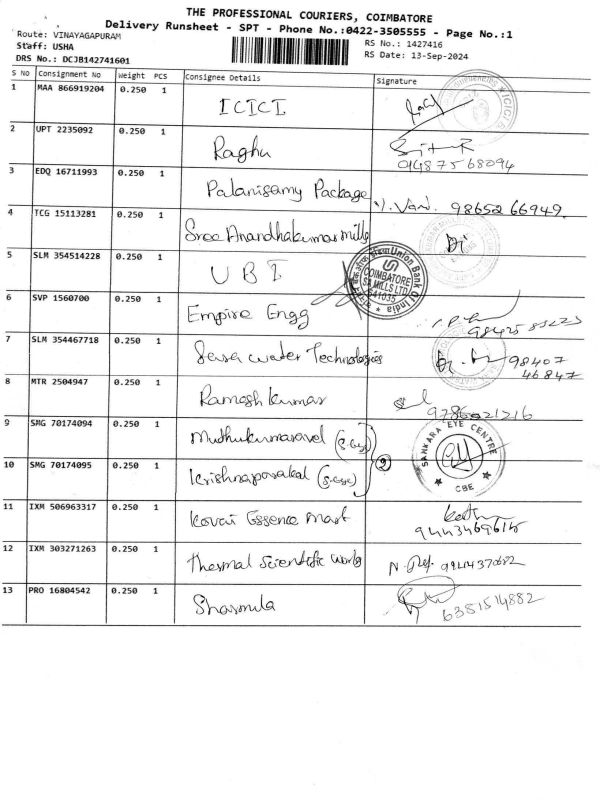 THE PROFESSIONAL COURIERS, COIMBATORE
Delivery Runsheet - SPT - Phone No.:0422-3505555 - Page No.:1
Route: VINAYAGAPURAM
Staff: USHA
RS No.: 1427416
DRS No.: DCJB142741601
RS Date: 13-Sep-2024
S No Consignment No Weight PCS Consignee Details Signature
1 MAA 866919204 0.250 1 ICICI
2 UPT 2235092 0.250 1 Raghu
9487568094
3 EDQ 16711993 0.250 1 Palanisamy Package 9865266949
4 TCG 15113281 0.250 1 Sree Anandhakumar mills
5 SLM 354514228 0.250 1 UBI
Union Bank Of India
COIMBATORE
SA MILLS LTD
641035
6 SVP 1560700 0.250 1 Empire Engg
7 SLM 354467718 0.250 1 Sensa water Technologies 98407
46847
8 MTR 2504947 0.250 1 Ramesh kumar
9786021216
9 SMG 70174094 0.250 1 Muthukumaravel (S-Eye)
SANKARA EYE CENTRE
CBE
10 SMG 70174095 0.250 1 (S-Eye) 2
11 IXM 506963317 0.250 1 Kovai Essence Mart
9443469615
12 IXM 303271263 0.250 1 Thermal Scientific works
13 PRO 16804542 0.250 1 Sharmila
6381514882